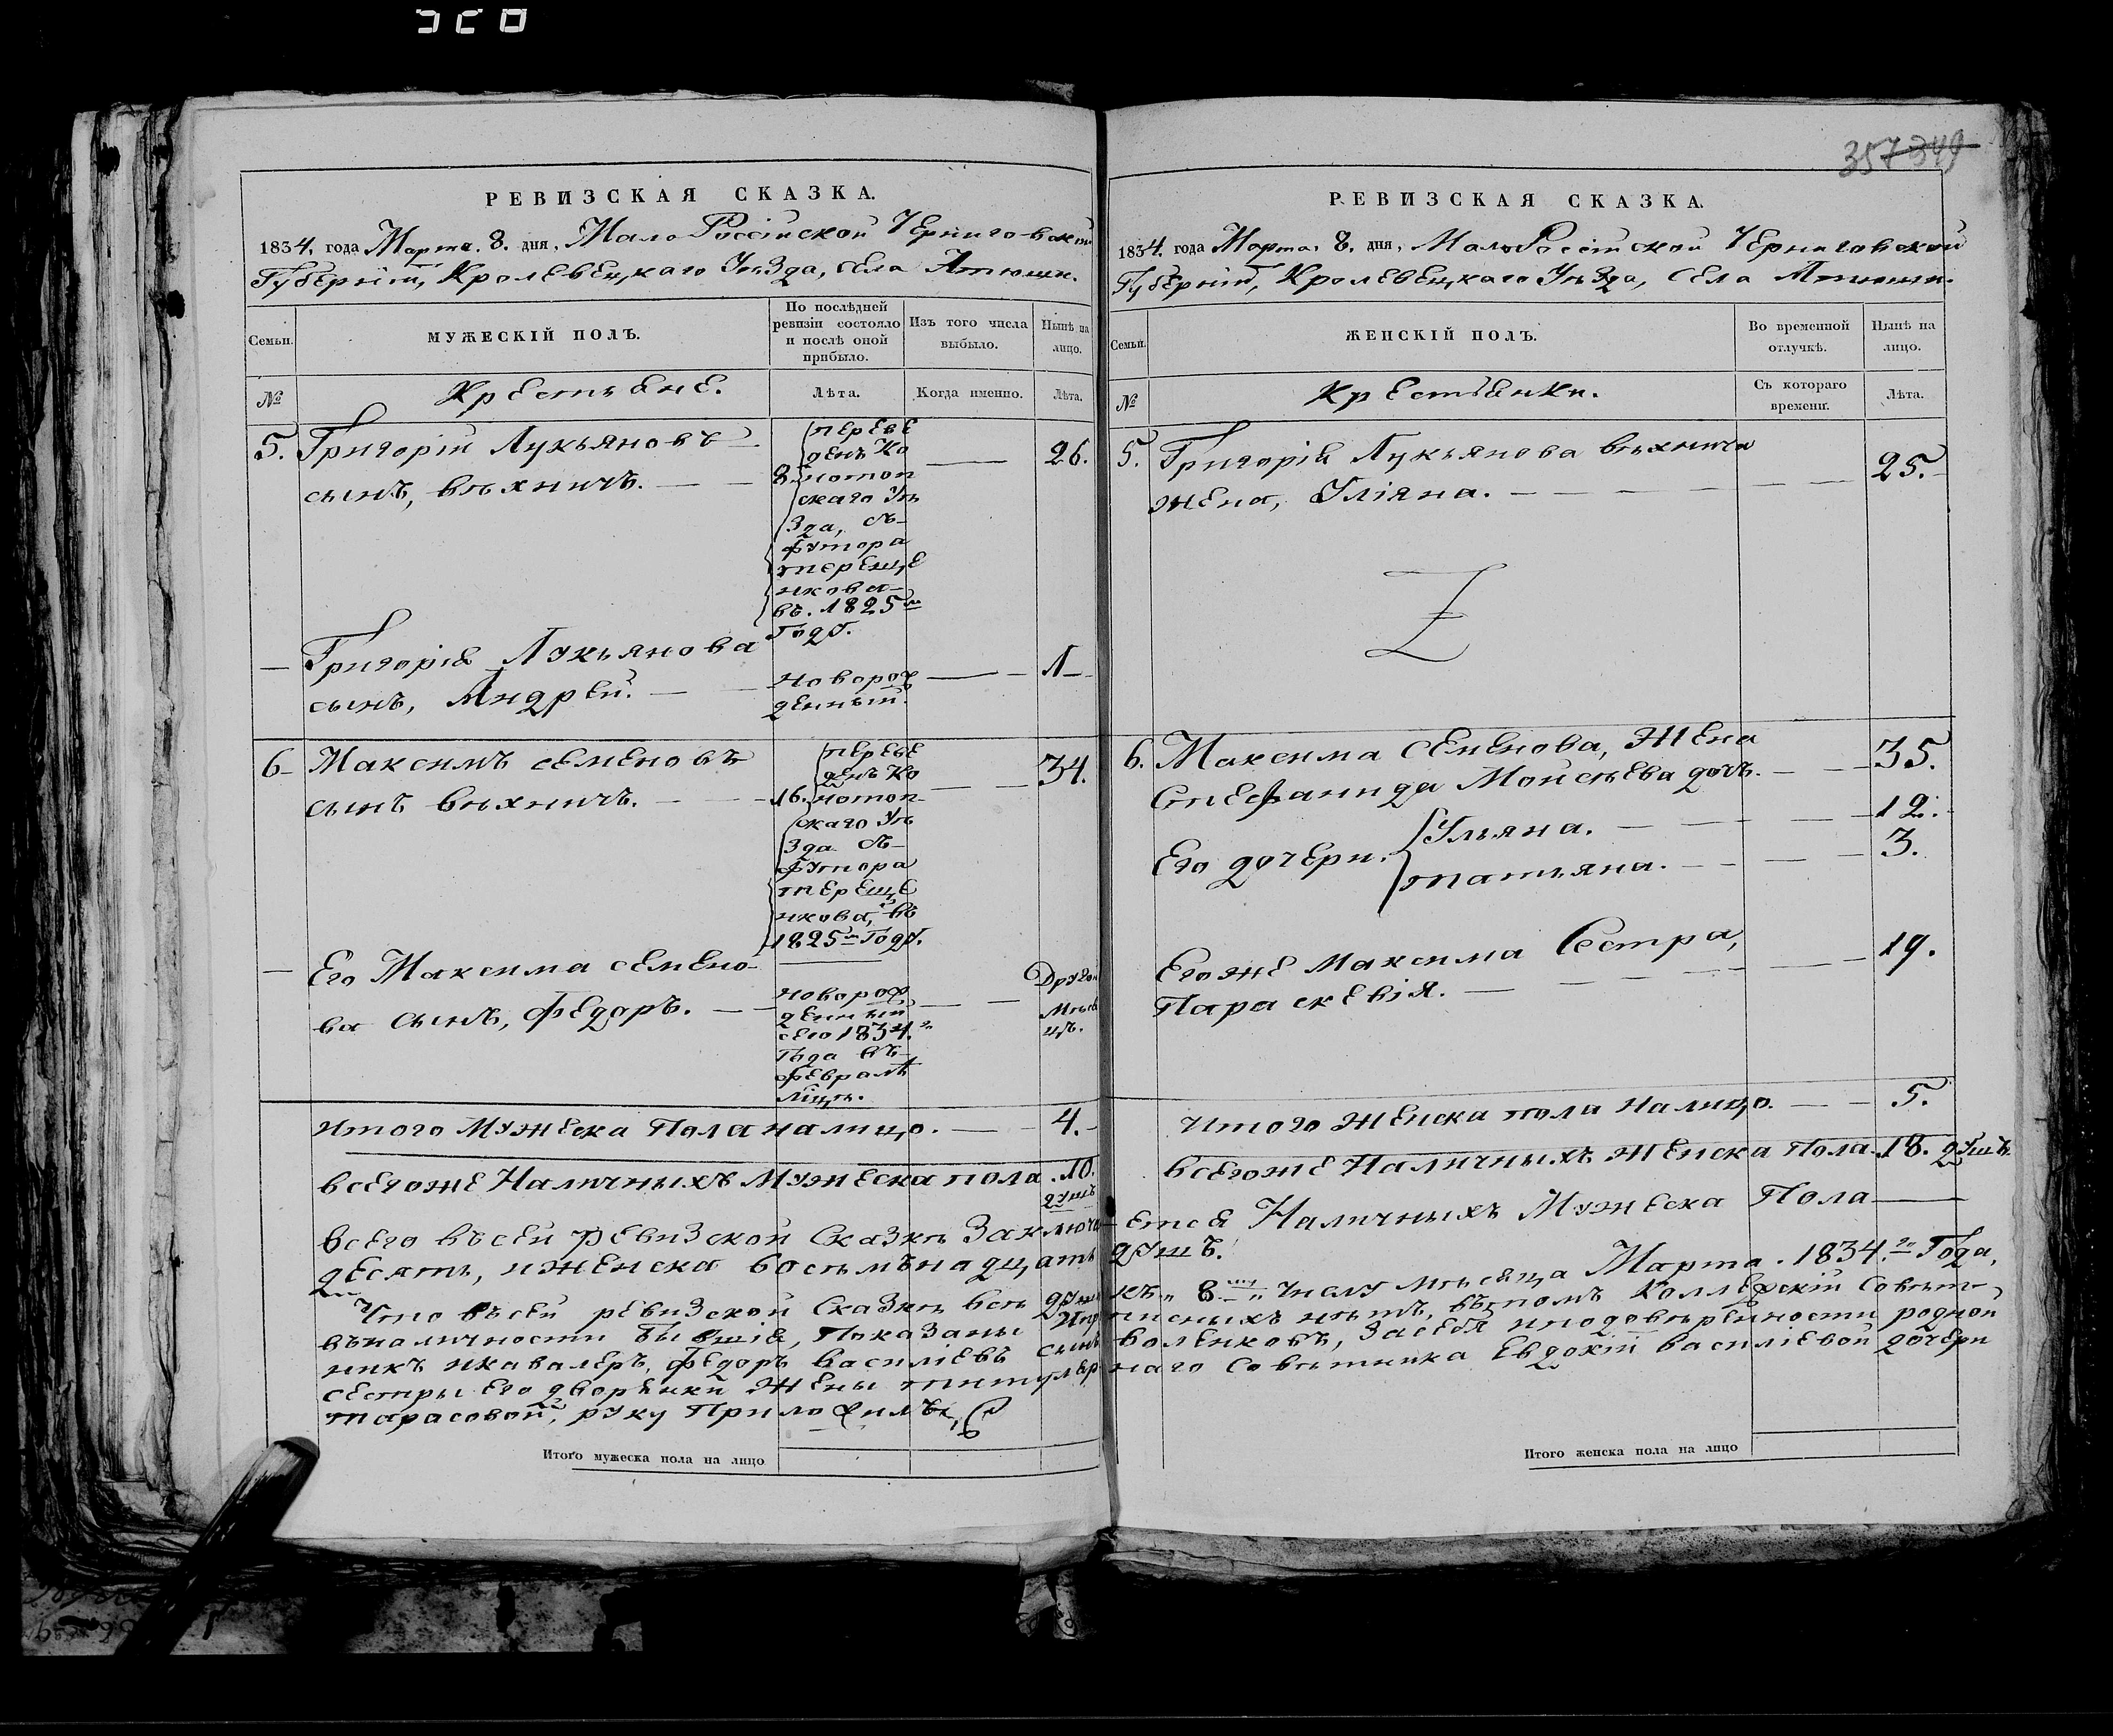 357 349
РЕВИЗСКАЯ СКАЗКА.
1834. года Марта. 8. дня, МалоРоссійской Черниговской
Губерніи, Кролевецкаго Уѣзда, села Атюши.
Семьи.
МУЖЕСКІЙ ПОЛЪ.
По послѣдней
ревизіи состояло
и послѣ оной
прибыло.
Изъ того числа
выбыло.
Нынѣ на
лицо.
№
Крестьяне.
Лѣта.
Когда именно.
Лѣта.
5. Григорій Лукьяновъ
сынъ, вѣхничъ.
8.
переве
денъ Ко
нотоп
скаго Уѣ
зда, съ
футора
тереще
нкова
въ. 1825м
Году.
26.
Григорія Лукьянова
сынъ, Андрей.
Новорож
денный.
1
6 Максимъ семеновъ
сынъ вѣхничъ.
16.
переве
денъ Ко
нотоп
скаго Уѣ
зда съ
футора
тереще
нкова, въ
1825м Году.
34.
Его Максима семено
ва сынъ, Федоръ.
Новорож
денный
сего 1834.го
Года въ
февралѣ
мцѣ.
Другой
Мѣся
цъ.
итого Мужеска Пола налицо. 4.
всегоже Наличныхъ Мужеска пола. 10.
душъ
РЕВИЗСКАЯ СКАЗКА.
1834. года Марта. 8. дня, МалоРоссійской Черниговской
Губерніи, Кролевецкаго Уѣзда, села Атюши.
Семьи.
ЖЕНСКІЙ ПОЛЪ.
Во временной
отлучкѣ.
Нынѣ на
лицо.
№
Крестьянки.
Съ котораго
времени.
Лѣта.
5. Григорія Лукьянова вѣхнича
жена, Уліяна. 25.
6. Максима семенова, Жена
Стефанида Мойсѣева дочъ. 35.
Его дочери.
Ульяна. 12.
татьяна. 3.
Егоже Максима Сестра,
Параскевія. 19.
итого Женска пола Налицо. 5.
всегоже Наличныхъ Женска Пола. 18. душъ
всего въсей Ревизской Сказкѣ Заключается Наличныхъ Мужеска Пола
десять, иЖенска восѣмьнадцать душъ.
Что въсей ревизской Сказкѣ всѣ души къ " 8му " числу мѣсяца Марта. 1834.го Года,
въналичности бывшія, Показаны и писныхъ нѣтъ, втомъ Коллежскій Совѣт
никъ икавалеръ, Федоръ Василіевъ сынъ воленковъ, засебя иподовѣренности родной
сестры его дворянки Жены титулярнаго Совѣтника Евдокіи Василіевой дочери
тарасовой, руку Приложилъ,
Итого мужеска пола на лицо
Итого женска пола на лицо